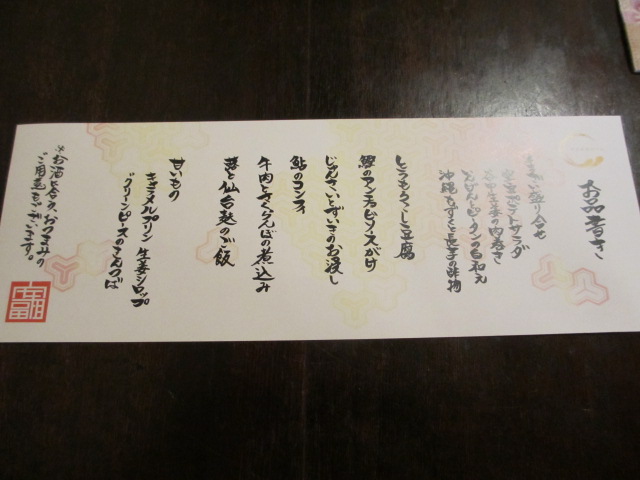 お品書き
盛り合せ
サラダ
の肉巻き
とピータンの白和え
沖縄もずくと長芋の酢物
とうもろこし豆腐
鰹のアンチョビソースがけ
じゅんさいとずいきのお浸し
鮎のコンフィ
牛肉とさくらんぼの煮込み
と仙台麩のご飯
甘いもの
キャラメルプリン 生姜シロップ
グリーンピースのきんつば
※お酒に合うおつまみの
ご用意もございます。